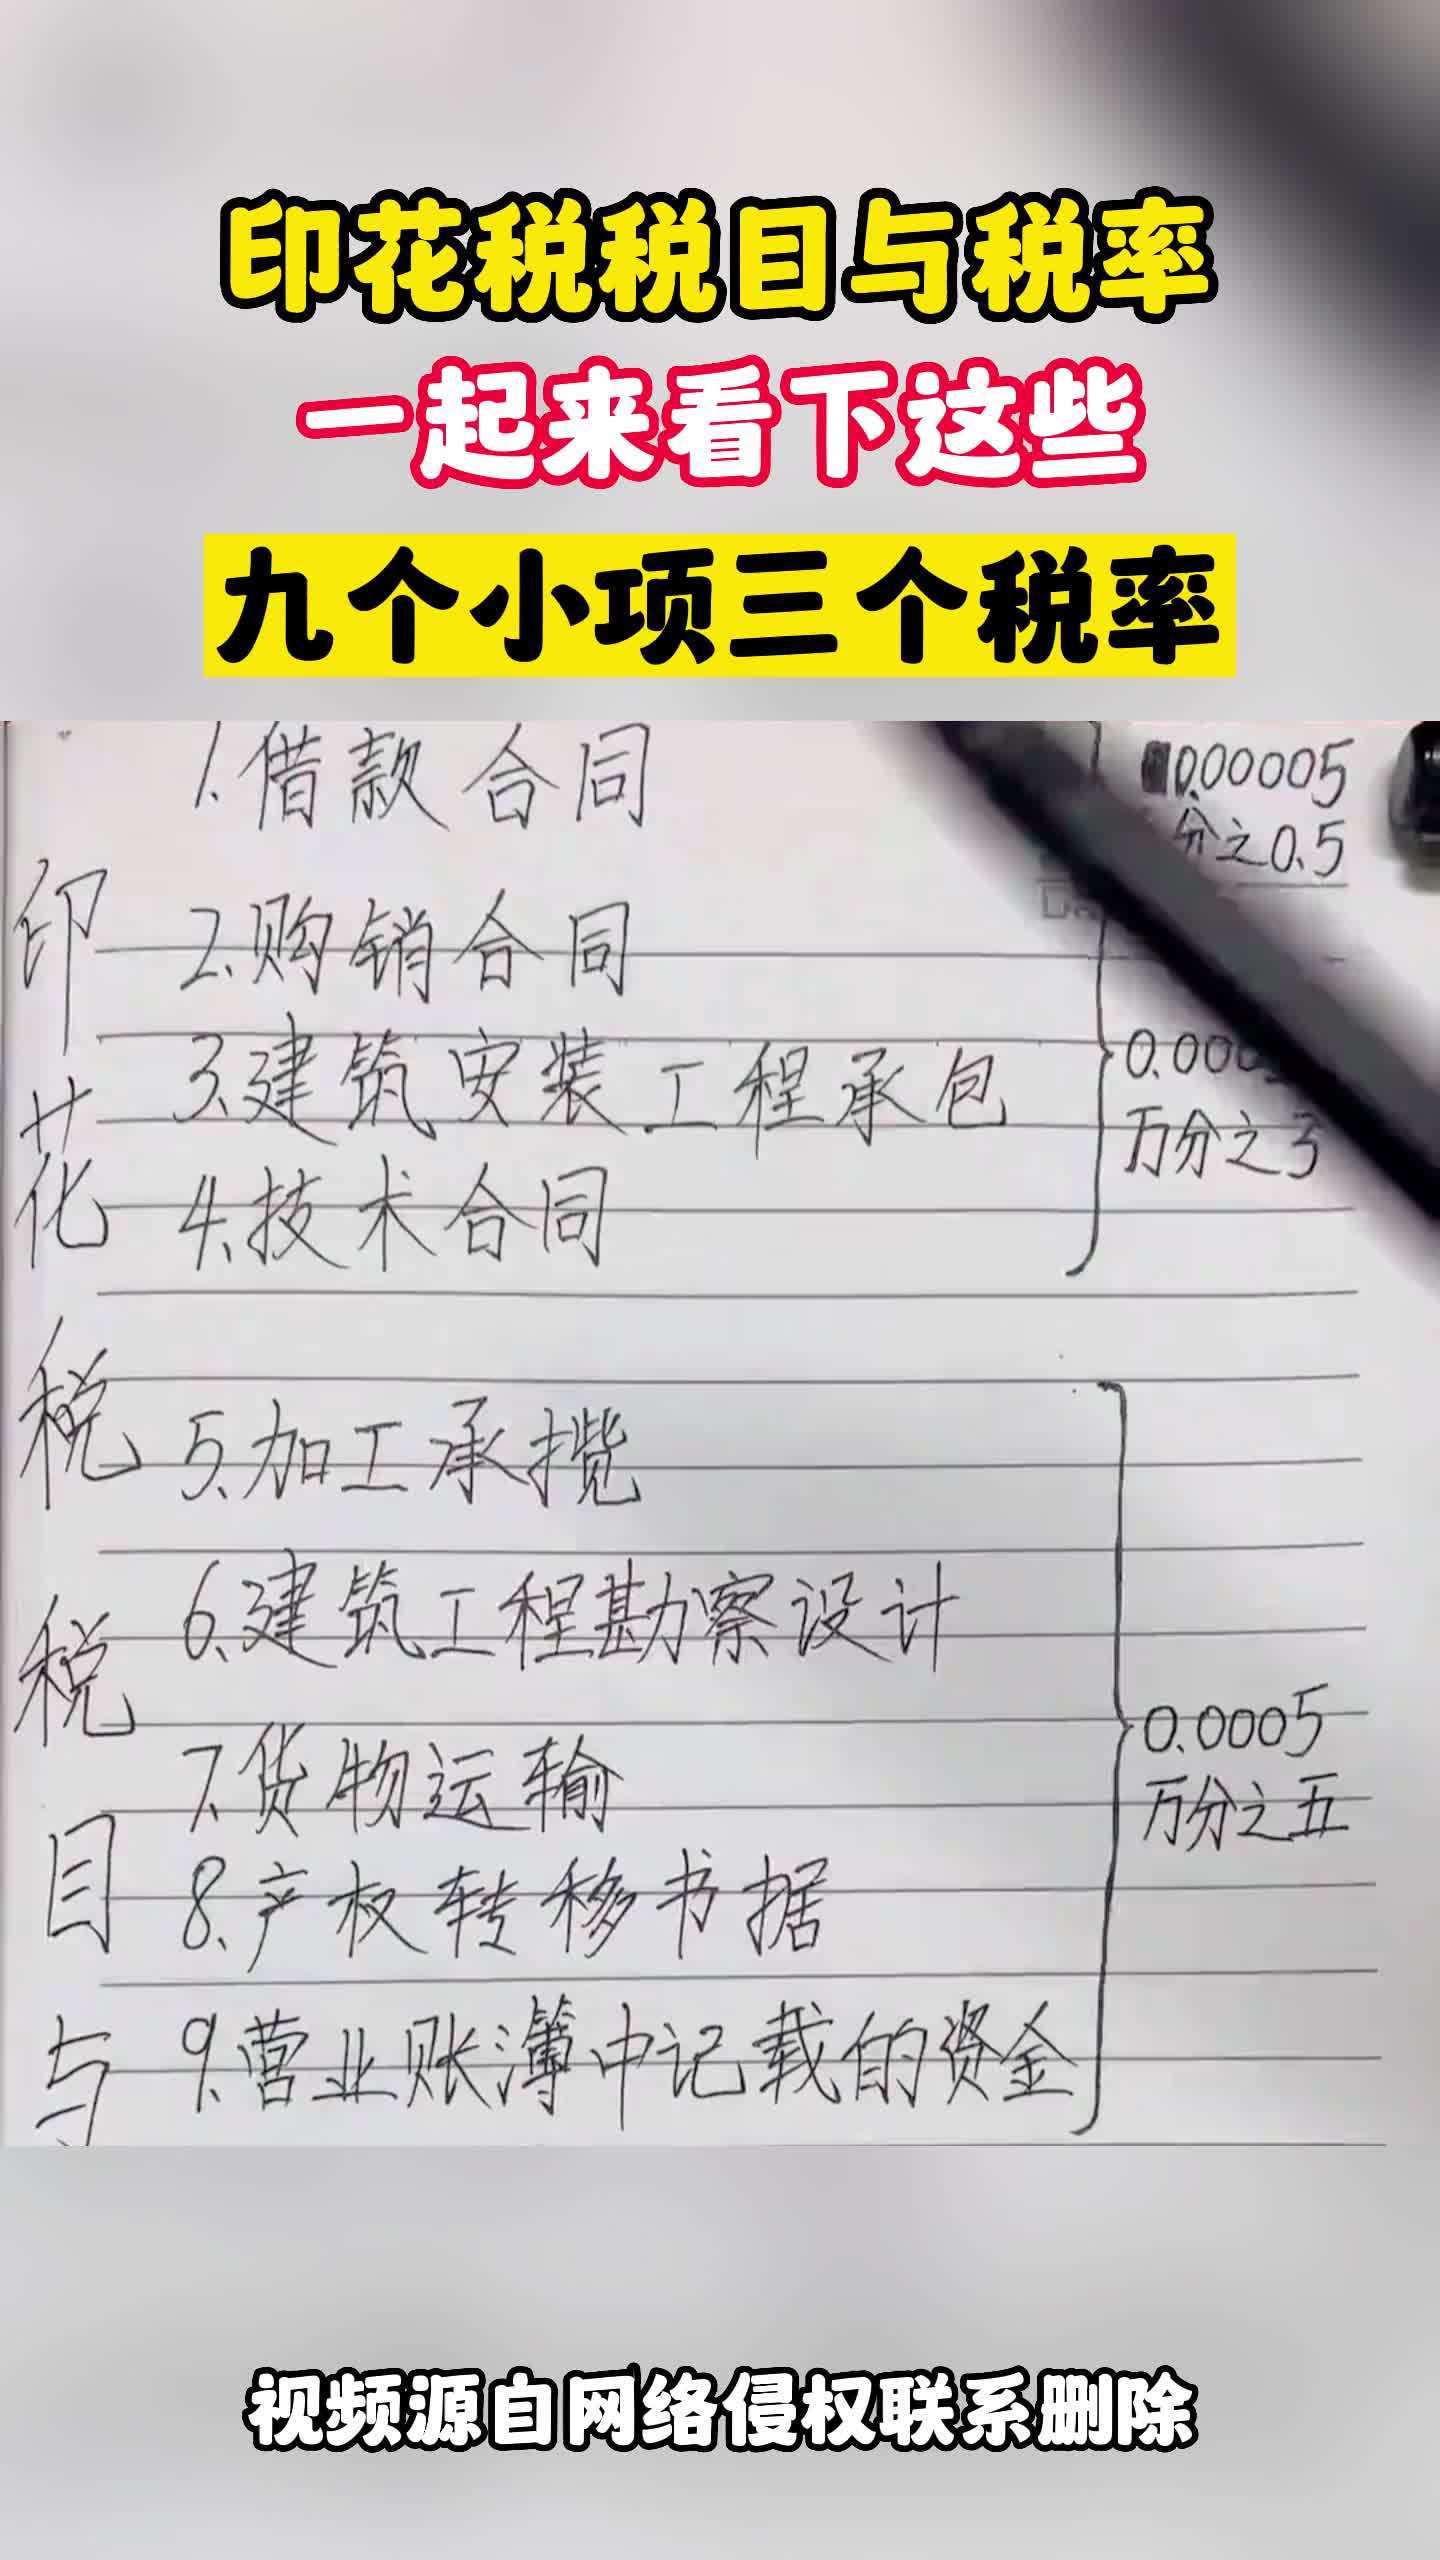 印花税税目与税率
一起来看下这些
九个小项三个税率
1.借款合同
0.00005
分之0.5
2.购销合同
3.建筑安装工程承包
0.000
万分之3
4.技术合同
5.加工承揽
6.建筑工程勘察设计
7.货物运输
0.0005
万分之五
8.产权转移书据
9.营业账簿中记载的资金
印花税税目与
视频源自网络侵权联系删除